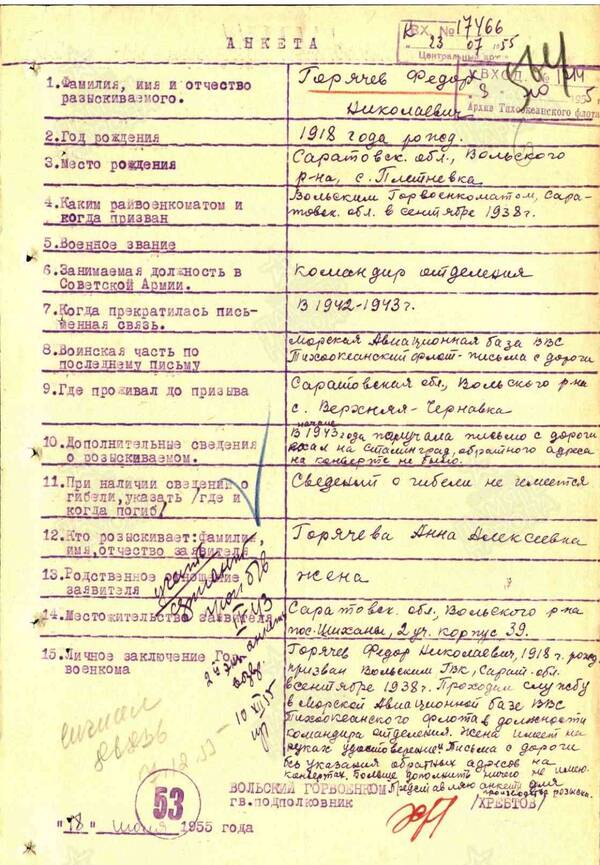 Вх. № 17466
23 07 55
АНКЕТА
ВХОД. №
Архив Тихоокеанского флота
1.Фамилия, имя и отчество
разыскиваемого.
Горячев Федор
Николаевич
2.Год рождения
1918 года рожд.
3.Место рождения
Саратовск. обл., Вольского
р-на, с. Плетневка
4.Каким райвоенкоматом и
когда призван
Вольским Горвоенкоматом, Сара-
товск. обл. в сентябре 1938г.
5.Военное звание
6.Занимаемая должность в
Советской Армии.
командир отделения
7.Когда прекратилась пись-
менная связь.
В 1942-1943г.
8.Воинская часть по
последнему письму
Морская Авиационная база ВВС
Тихоокеанский флот- письма с дороги
9.Где проживал до призыва
Саратовская обл., Вольского р-на
с. Верхняя-Чернавка
10.Дополнительные сведения
о розыскиваемом.
начале
В 1943 года получала письмо с дороги
ехал на Сталинград, обратного адреса
на конверте не было.
11.При наличии сведений о
гибели, указать /где и
когда погиб/
Сведений о гибели не имеется
12.Кто розыскивает:фамилия,
имя,отчество заявителя
Горячева Анна Алексеевна
13.Родственное отношение
заявителя
жена
14.Местожительство заявителя
Саратовск. обл., Вольского р-на
пос. Шиханы, 2 уч. корпус 39.
15.Личное заключение Гор
военкома
Горячев Федор Николаевич, 1918 г. рожд.
призван Вольским ГВК, Сарат. обл.
в сентябре 1938г. Проходил службу
в Морской Авиационной базе ВВС
Тихоокеанского флота в должности
командира отделения. Жена имеет на
руках удостоверение. Письма с дороги
без указания обратных адресов на
конвертах. Больше дополнить ничего не имею.
Представляю анкету для
производства розыска.
10 XII 55
53
ВОЛЬСКИЙ ГОРВОЕНКОМ
гв.подполковник
/ХРЕБТОВ/
"18" июля 1955 года